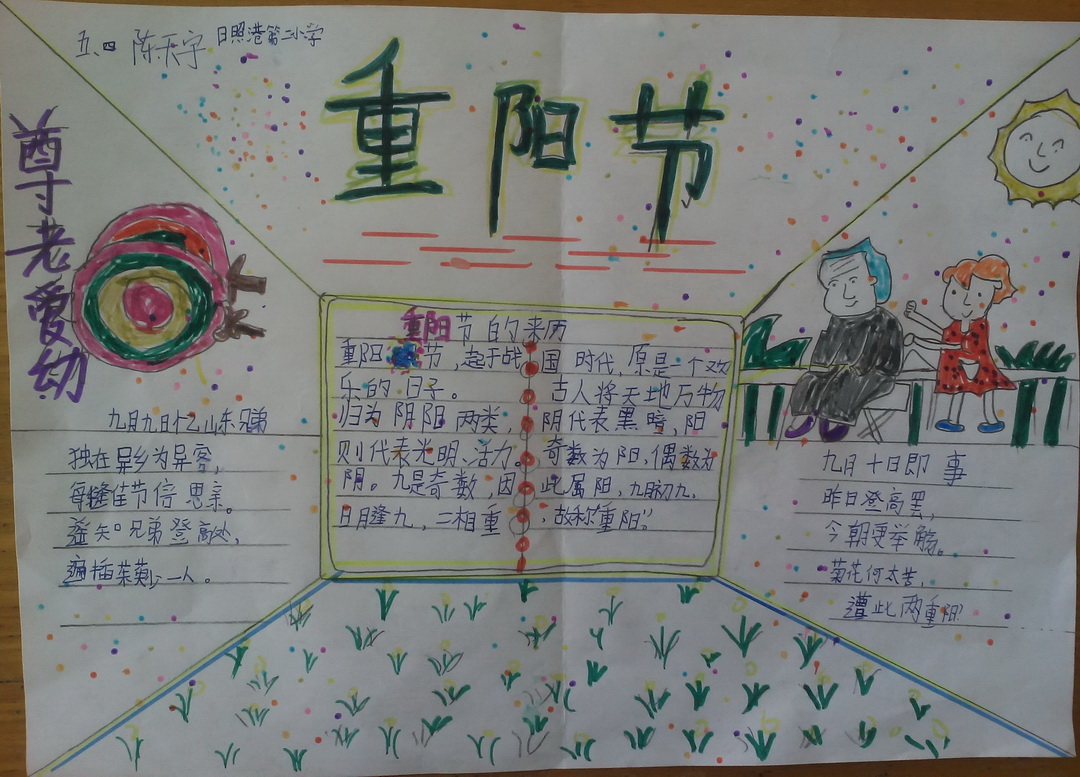 五、四 陈天宇 日照港第二小学
重阳节
尊老爱幼
九月九日忆山东兄弟
独在异乡为异客，
每逢佳节倍思亲。
遥知兄弟登高处，
遍插茱萸少一人。
重阳节的来历
重阳节，起于战国时代，原是一个欢
乐的日子。古人将天地万物
归为阴阳两类，阴代表黑暗，阳
则代表光明、活力。奇数为阳，偶数为
阴。九是奇数，因此属阳，九月初九，
日月逢九，二相重，故称“重阳”。
九月十日即事
昨日登高罢，
今朝更举觞。
菊花何太苦，
遭此两重阳？